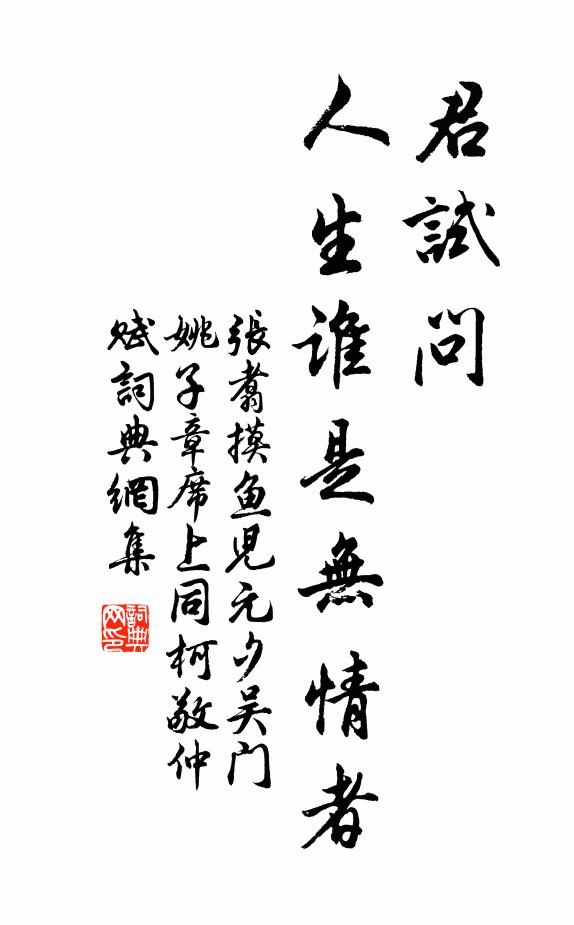 君試問
人生誰是無情者
張翥摸魚児元夕吴门
姚子章席上同柯敬仲
赋詞典網集
詞典网印